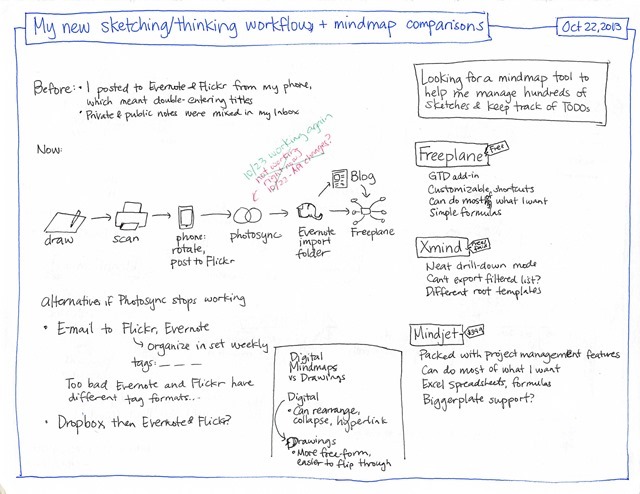 My new sketching/thinking workflow + mindmap comparisons
Oct 22, 2013
Before: • I posted to Evernote & Flickr from my phone,
which meant double-entering titles
• Private & public notes were mixed in my Inbox
Looking for a mindmap tool to
help me manage hundreds of
sketches & keep track of TODOs
Now:
10/23 working again
not working
right now
10/22 - API changes?
draw
scan
phone:
rotate,
post to Flickr
photosync
Evernote
import
folder
Blog
Freeplane
Freeplane
Free
GTD add-in
Customizable shortcuts
Can do most of what I want
Simple formulas
Xmind
Neat drill-down mode
Can't export filtered list?
Different root templates
Mindjet
$349
Packed with project management features
Can do most of what I want
Excel spreadsheets, formulas
Biggerplate support?
Alternatives if Photosync stops working
• E-mail to Flickr, Evernote
organize in set weekly
tags:
Too bad Evernote and Flickr have
different tag formats...
• Dropbox, then Evernote & Flickr?
Digital
Mindmaps
vs Drawings
Digital
• Can rearrange,
collapse, hyperlink
Drawings
• More free-form,
easier to flip through